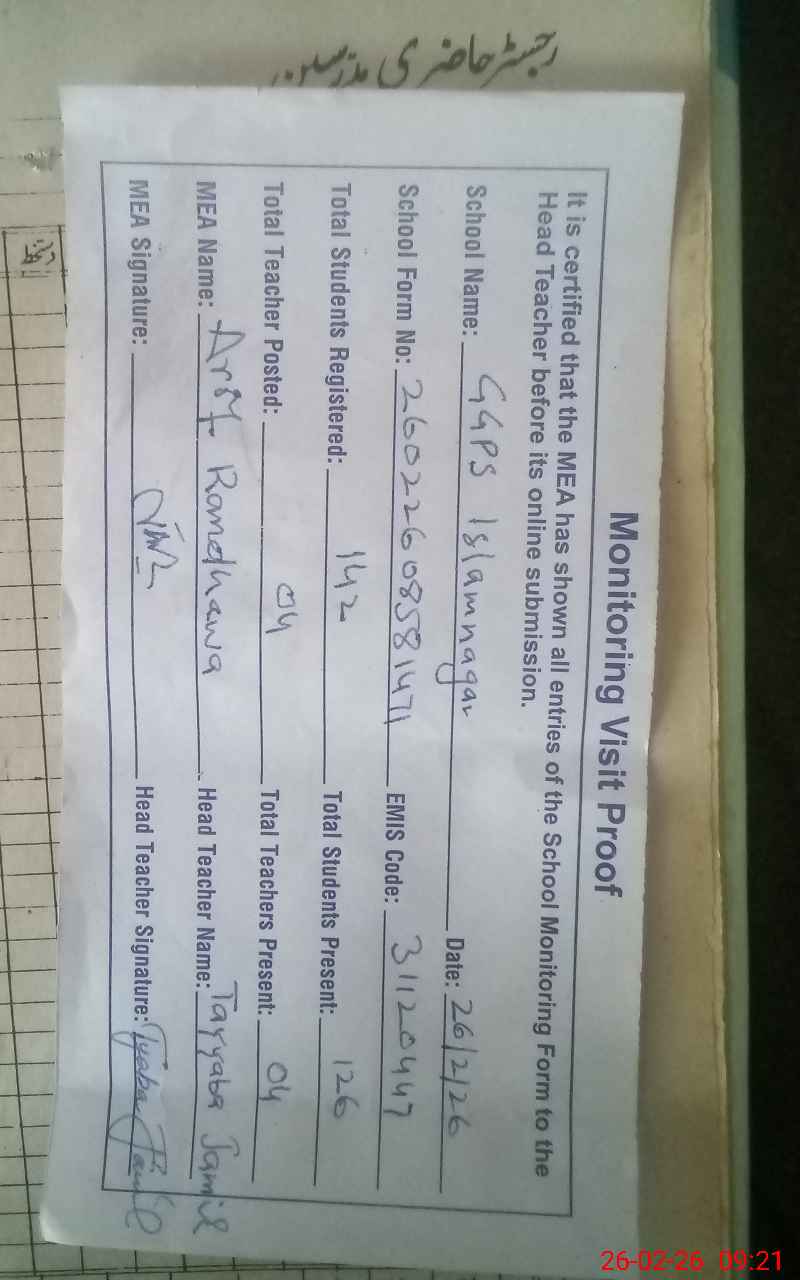 رجسٹر حاضری مدرسین
Monitoring Visit Proof
It is certified that the MEA has shown all entries of the School Monitoring Form to the
Head Teacher before its online submission.
School Name: GGPS Islamnagar Date: 26/2/26
School Form No: 26022608581471 EMIS Code: 31120447
Total Students Registered: 142 Total Students Present: 126
Total Teacher Posted: 04 Total Teachers Present: 04
MEA Name: Arif Randhawa Head Teacher Name: Tayyaba Jamil
MEA Signature: Head Teacher Signature: Tyaba Jamil
26-02-26 09:21